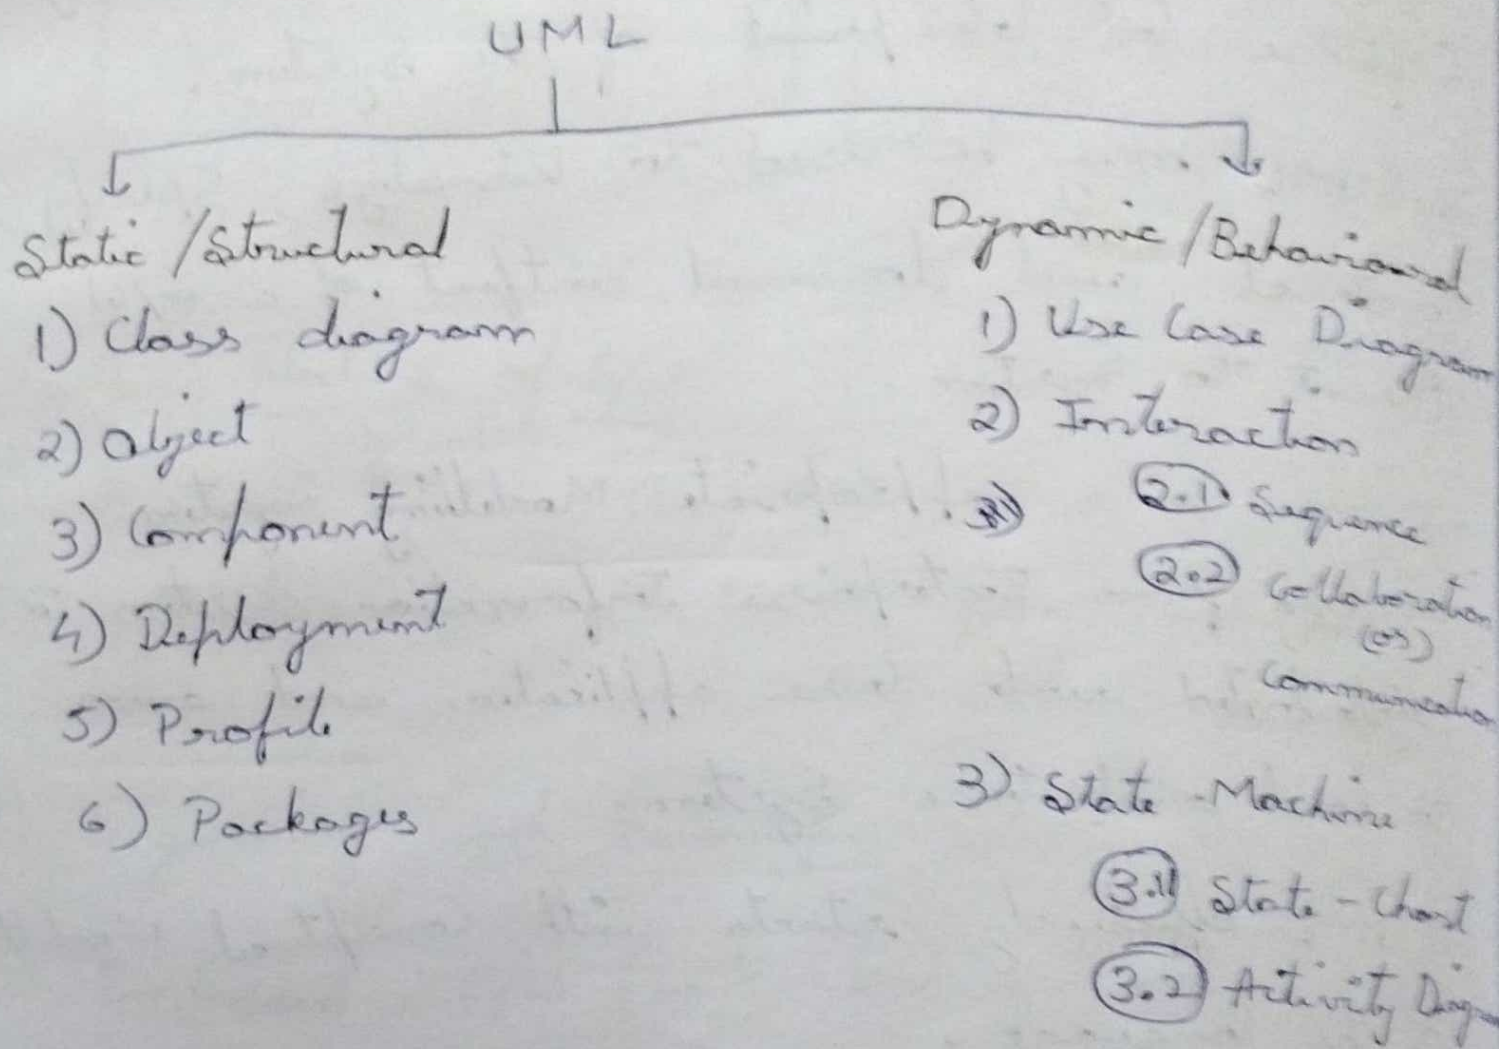 UML
Static / Structural
1) Class diagram
2) Object
3) Component
4) Deployment
5) Profile
6) Packages
Dynamic / Behavioural
1) Use Case Diagram
2) Interaction
2.1 Sequence
2.2 Collaboration
(or)
Communication
3) State-Machine
3.1 State-Chart
3.2 Activity Diagram